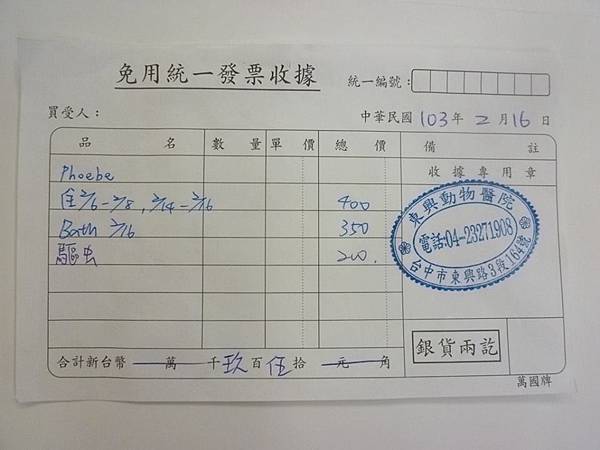 免用統一發票收據
統一編號：
買受人：
中華民國 103 年 2 月 16 日
品 名 數 量 單 價 總 價 備 註
收據專用章
Phoebe
住 2/6-2/8, 2/14-2/16 400
Bath 2/16 350
驅虫 200.
東興動物醫院
電話:04-23271908
台中市東興路3段164號
銀貨兩訖
合計新台幣 萬 千 玖 百 伍 拾 元 角
萬國牌